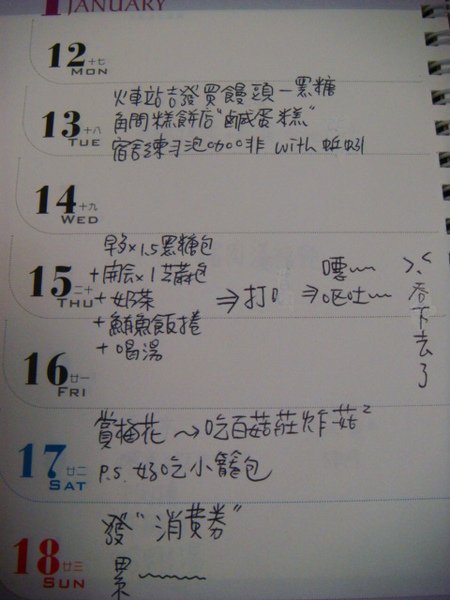 1 JANUARY
12 十七
MON
火車站吉發買饅頭一黑糖
13 十八
角間糕餅店"鹹蛋糕"
TUE
宿舍練习泡咖啡 with 蚯蚓
14 十九
WED
早餐×1.5黑糖包
+開会×1芝麻包
15 二十
THU
+奶茶 ⇒打嗝 ⇒嘔吐~~
+鮪魚飯捲
+喝湯
吞下去了
16 廿一
FRI
賞梅花 ~→吃百菇莊炸菇²
17 廿二
SAT
P.S. 好吃小籠包
發"消費券"
18 廿三
SUN
累~~~~